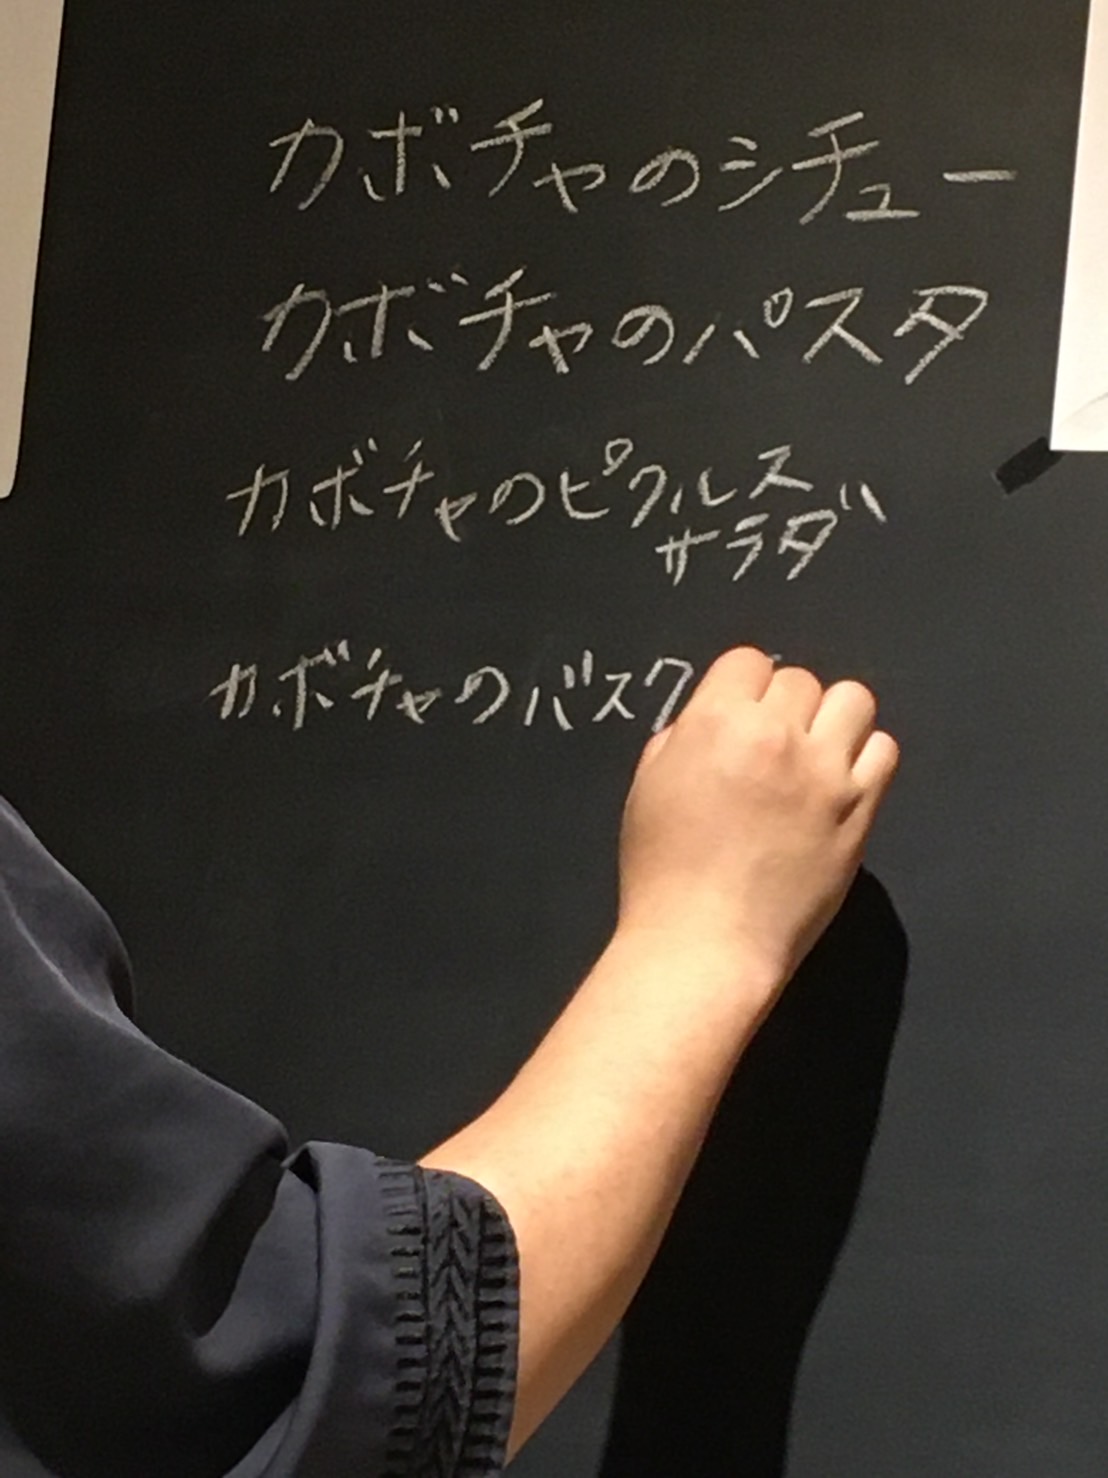 カボチャのシチュー
カボチャのパスタ
カボチャのピクルス
サラダ
カボチャのバスク